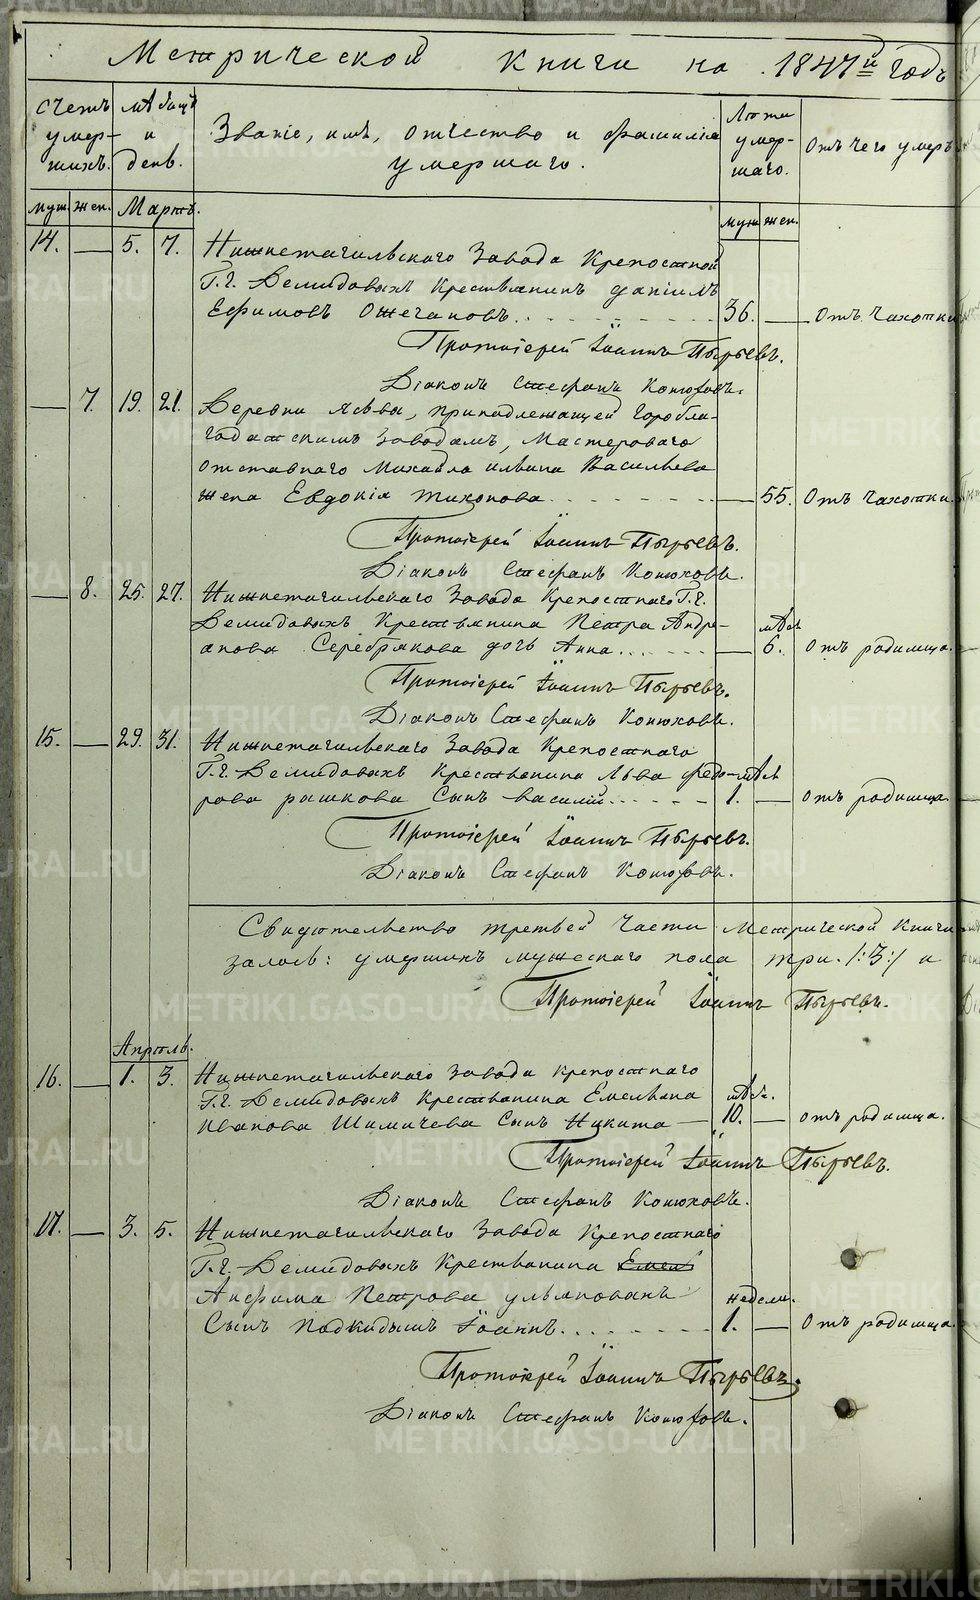 Метрической Книги на 1847й годъ
Счетъ умер-шихъ.
Мѣсяцъ и день.
Званіе, имя, отчество и фамилія умершаго.
Лѣта умер-шаго.
Отъ чего умеръ
муж. жен. Мартъ. муж. жен.
14. — 5. 7. Нижнетагильскаго Завода Крѣпостной
Г.г. Демидовыхъ Крестьянинъ Даніилъ
Ефимовъ Ожегановъ. 36. — Отъ чахотки
Протоіерей Іоаннъ Пырьевъ.
Діаконъ Стефанъ Конюховъ.
— 7. 19. 21. Деревни Лѣвы, принадлежащей Горобла-
годатскимъ Заводамъ, Мастероваго
отставнаго Михайла Васильева
жена Евдокія Тихонова. — 55. Отъ чахотки.
Протоіерей Іоаннъ Пырьевъ.
Діаконъ Стефанъ Конюховъ.
— 8. 25. 27. Нижнетагильскаго Завода Крѣпостнаго Г.г.
Демидовыхъ Крестьянина Петра Андре-
янова Серебрякова дочь Анна. — мѣс. 6. Отъ родимца.
Протоіерей Іоаннъ Пырьевъ.
Діаконъ Стефанъ Конюховъ.
15. — 29. 31. Нижнетагильскаго Завода Крѣпостнаго
Г.г. Демидовыхъ Крестьянина Льва Федо- мѣс.
рова Рашкова Сынъ Василій. 1. — отъ родимца.
Протоіерей Іоаннъ Пырьевъ.
Діаконъ Стефанъ Конюховъ.
Свидѣтельство третьей части Метрической Книги
залось: умершихъ мужескаго пола три /:3:/ и
Протоіерей Іоаннъ Пырьевъ.
Апрѣль.
16. — 1. 3. Нижнетагильскаго Завода крѣпостнаго
Г.г. Демидовыхъ Крестьянина Емельяна мѣс.
Иванова Шимичева Сынъ Никита — 10. — отъ родимца.
Протоіерей Іоаннъ Пырьевъ.
Діаконъ Стефанъ Конюховъ.
17. — 3. 5. Нижнетагильскаго Завода Крѣпостнаго
Г.г. Демидовыхъ Крестьянина Емел
Анфима Петрова Ульяновыхъ недели.
Сынъ Подкидышъ Іоаннъ. 1. — Отъ родимца.
Протоіерей Іоаннъ Пырьевъ.
Діаконъ Стефанъ Конюховъ.
METRIKI.GASO-URAL.RU